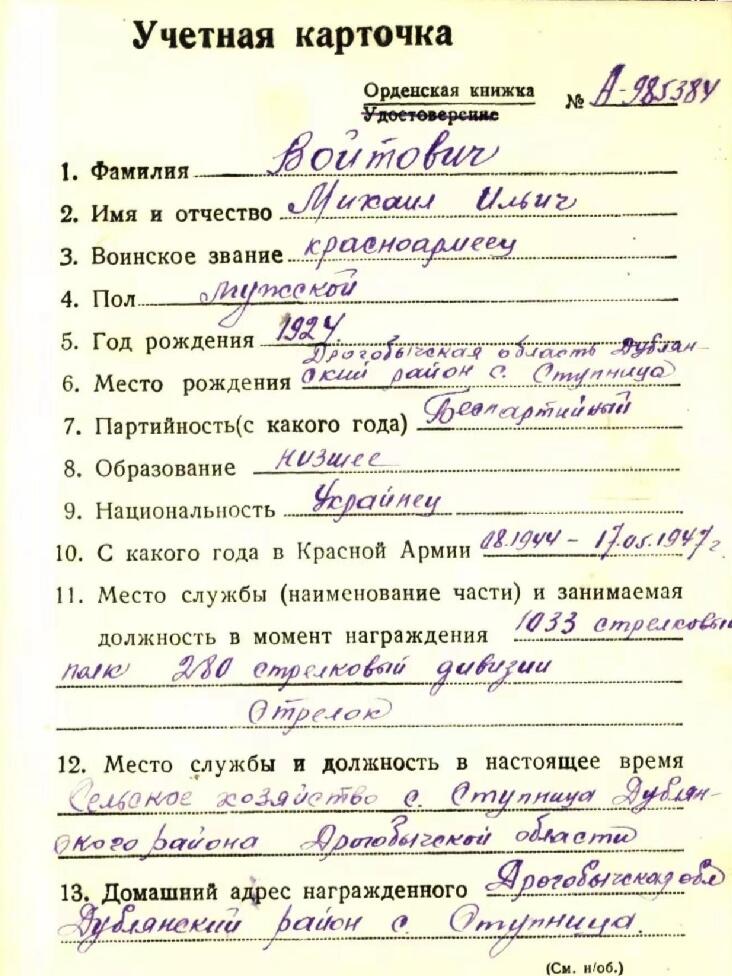 Учетная карточка
Орденская книжка № А-985384
Удостоверение
1. Фамилия Войтович
2. Имя и отчество Михаил Ильич
3. Воинское звание красноармеец
4. Пол мужской
5. Год рождения 1924
Дрогобычская область Дублян-
6. Место рождения ский район с. Ступница
7. Партийность(с какого года) Беспартийный
8. Образование низшее
9. Национальность Украинец
10. С какого года в Красной Армии 08.1944 – 17.05.1947г.
11. Место службы (наименование части) и занимаемая
должность в момент награждения 1033 стрелковый
полк 280 стрелковый дивизии
Стрелок
12. Место службы и должность в настоящее время
Сельское хозяйство с. Ступница Дублян-
ского района Дрогобычской области
13. Домашний адрес награжденного Дрогобычская обл
Дублянский район с. Ступница.
(См. н/об.)